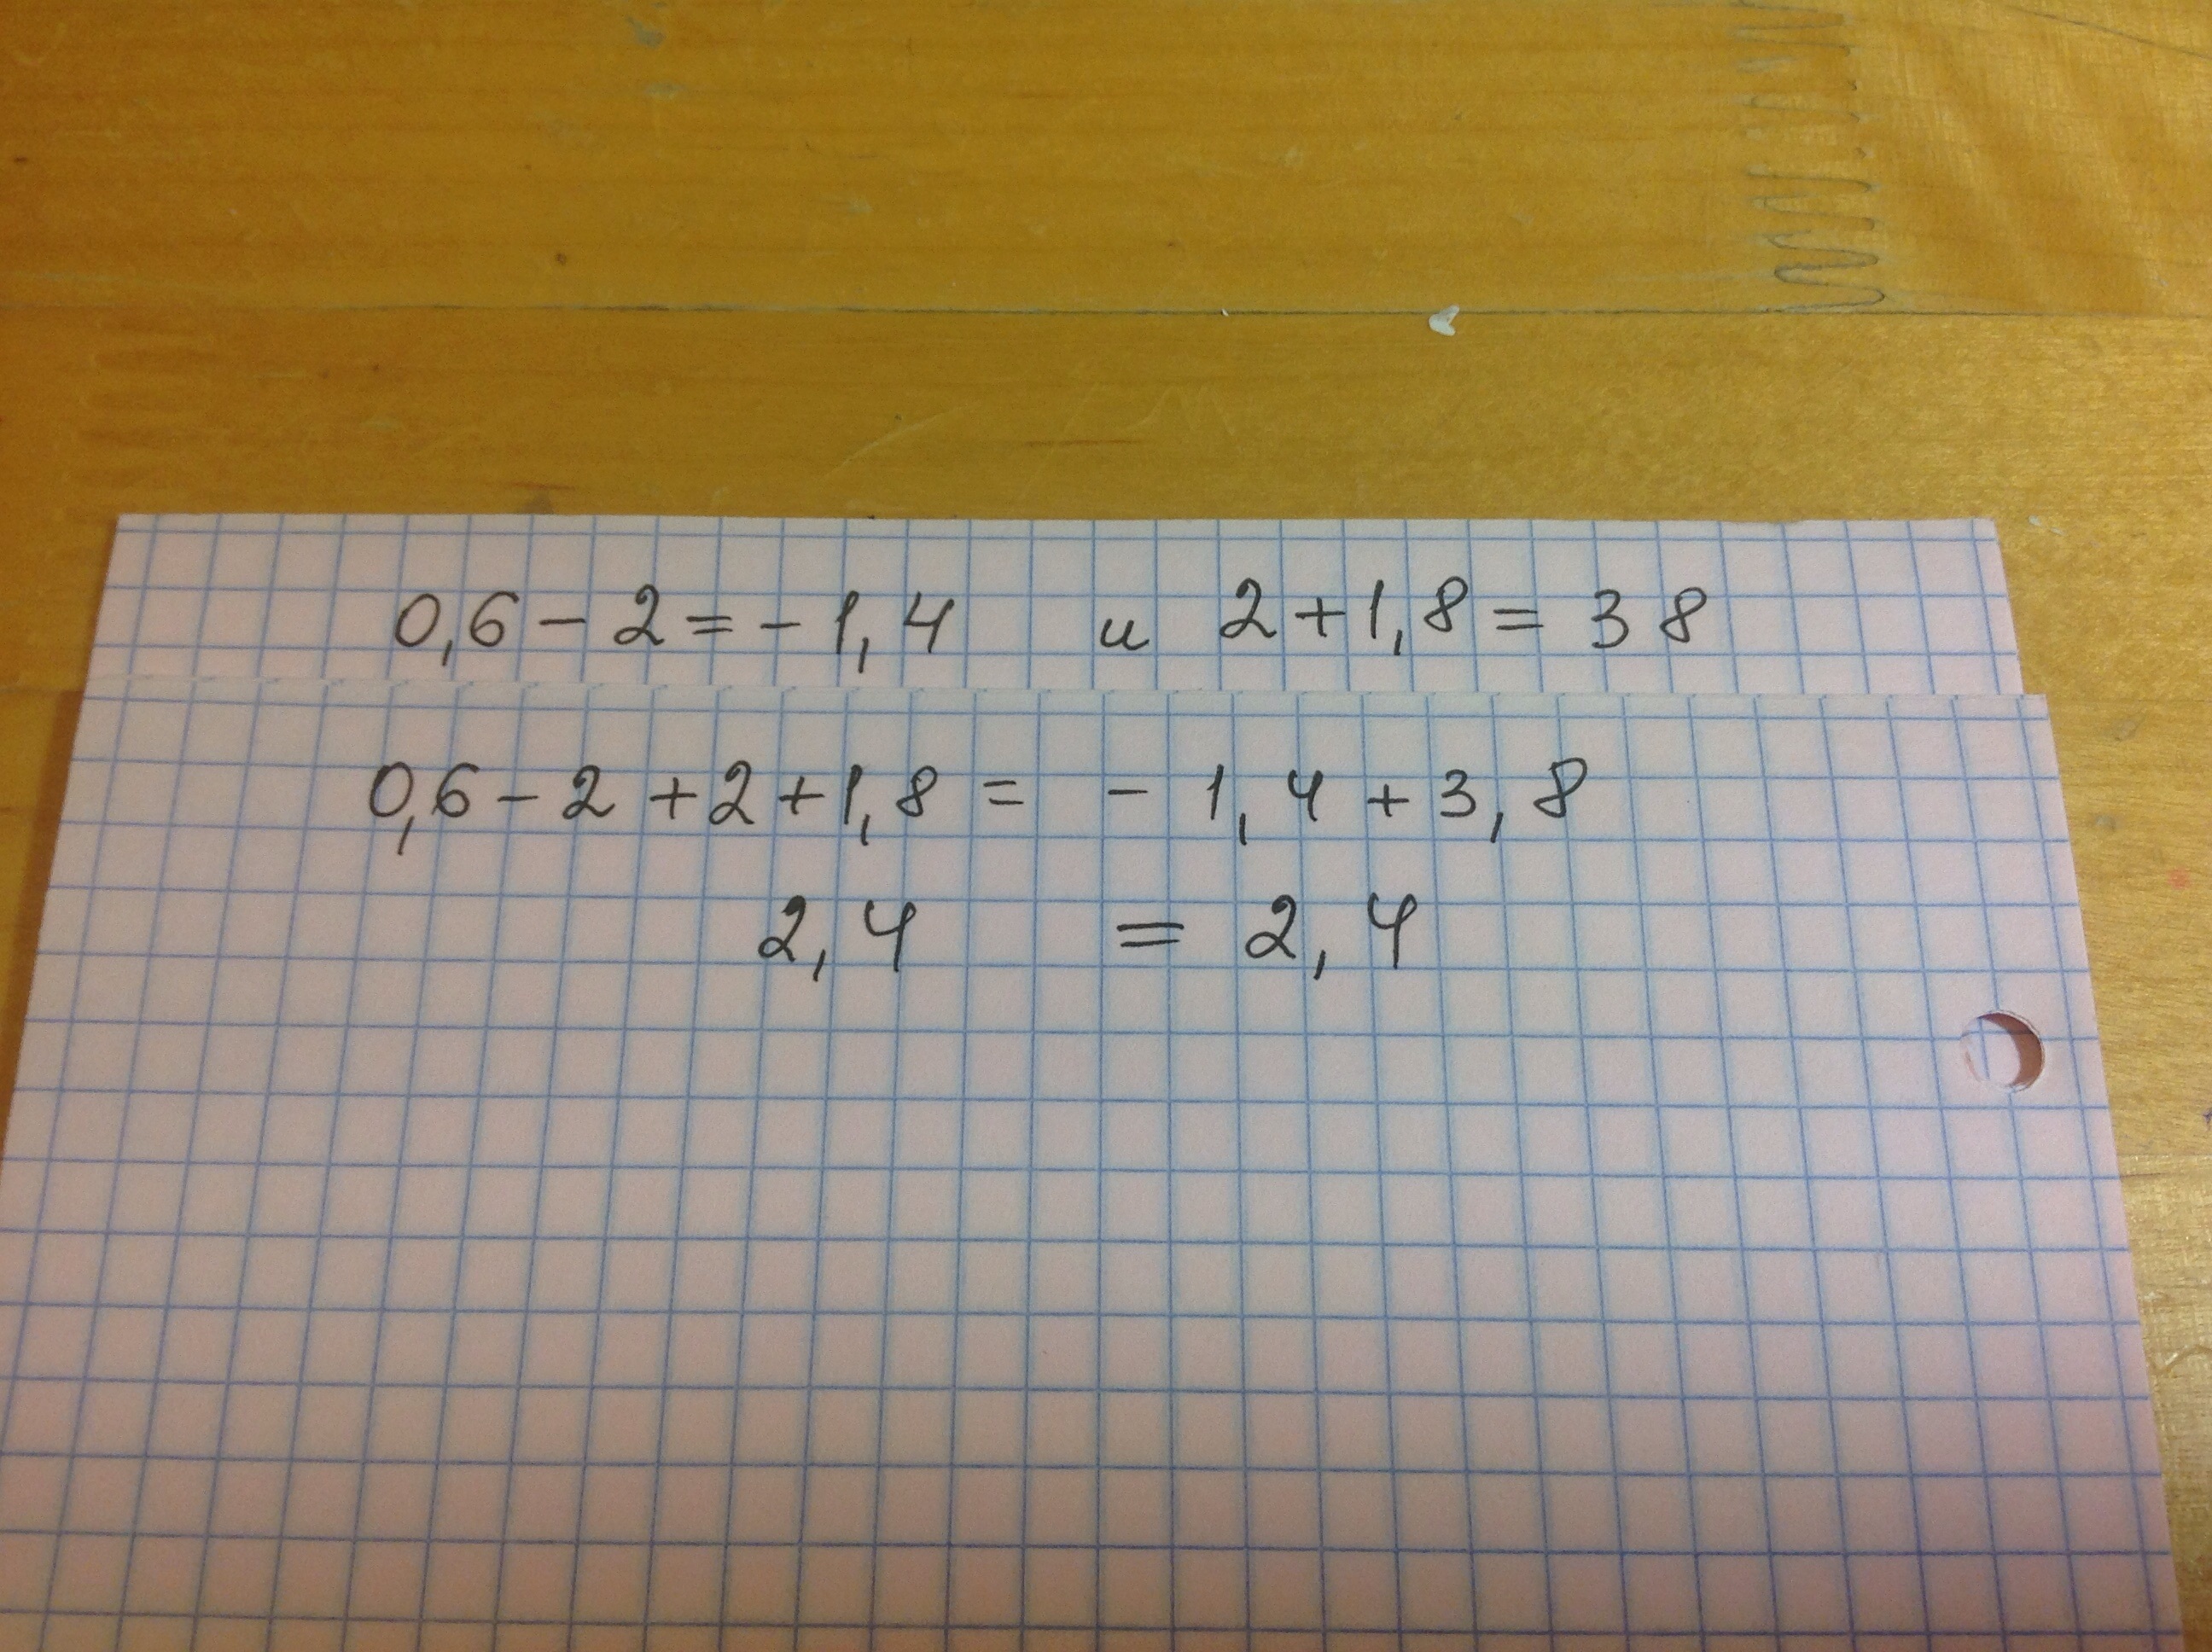 0,6 - 2 = - 1,4 и 2 + 1,8 = 3 8
0,6 - 2 + 2 + 1,8 = - 1,4 + 3,8
2,4 = 2,4